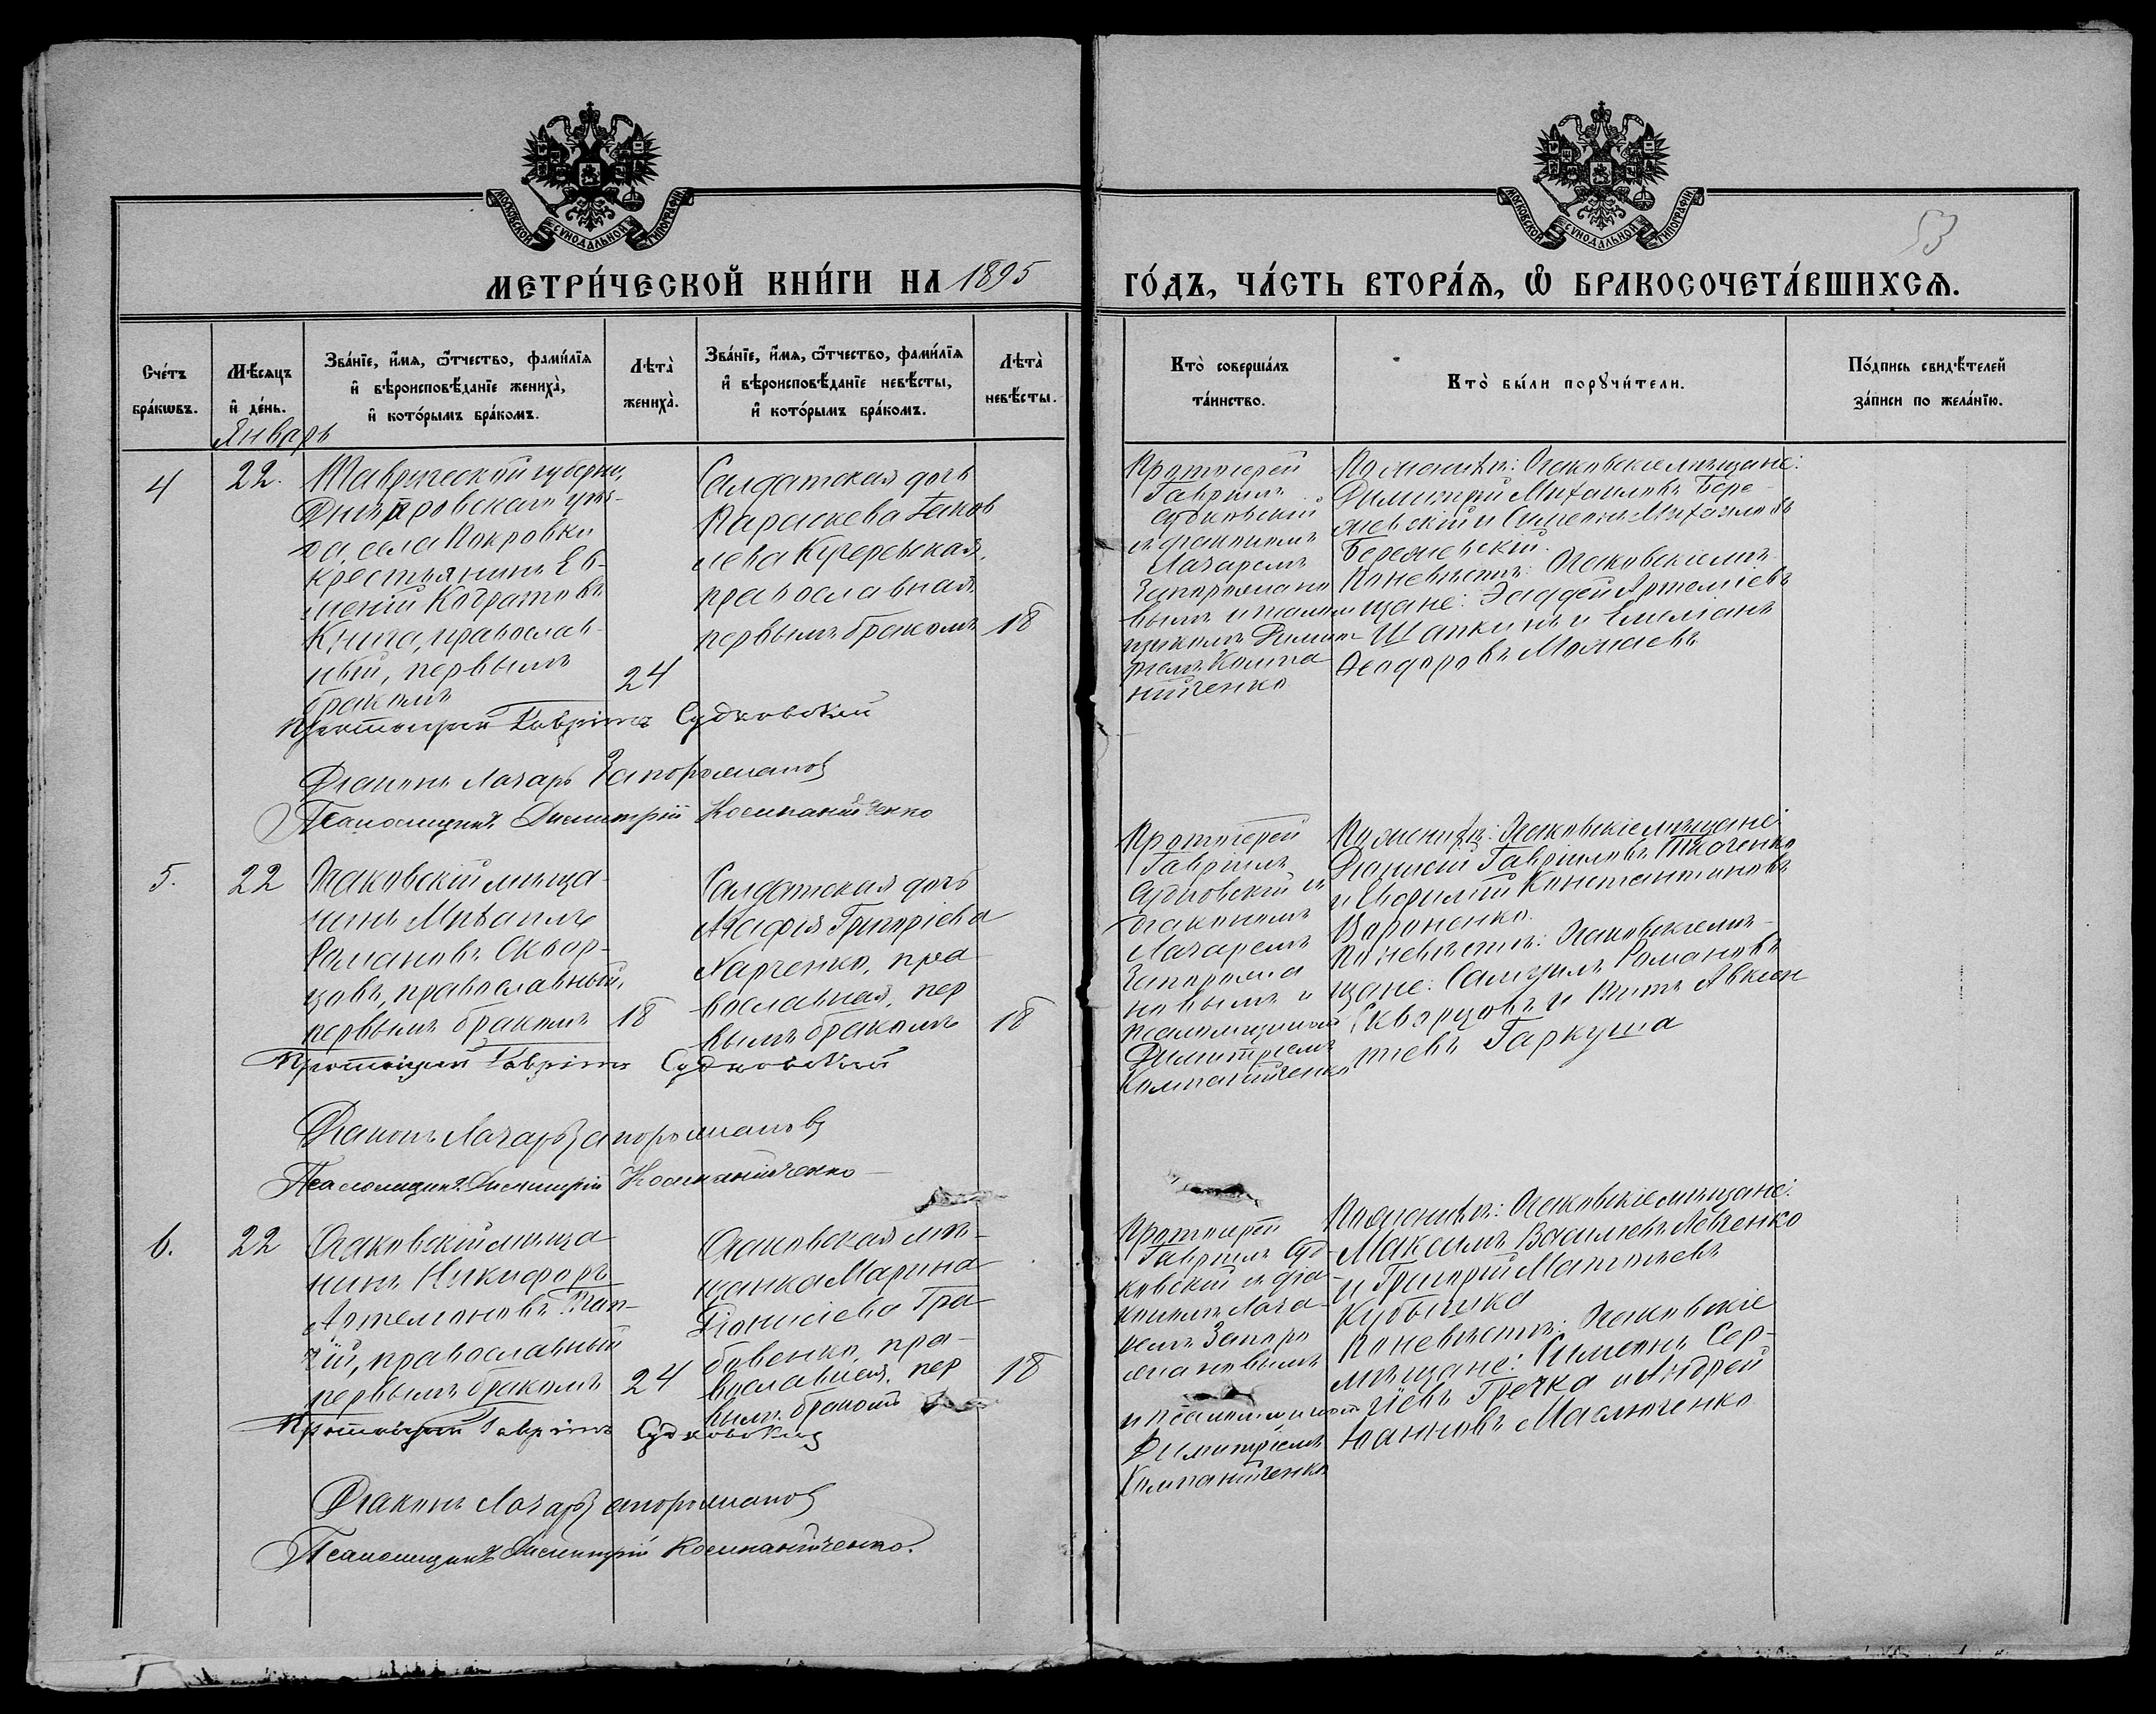 МОСКОВСКОЙ СУНОДАЛЬНОЙ ТИПОГРАФІИ
МОСКОВСКОЙ СУНОДАЛЬНОЙ ТИПОГРАФІИ
53
МЕТРИ́ЧЕСКОЙ КНИ́ГИ НА 1895 ГО́ДЪ, ЧА́СТЬ ВТОРА́Ѧ, Ѽ БРАКОСОЧЕТА́ВШИХСѦ.
Сче́тъ
бра́кѡвъ.
Мѣ́сяцъ
и҆ де́нь.
Январь
Зва́нїе, и҆́мѧ, ѻ҆́тчество, фами́лїѧ
и҆ вѣроисповѣ́данїе жениха̀,
и҆ кото́рымъ бра́комъ.
Лѣта̀
жениха̀.
Зва́нїе, и҆́мѧ, ѻ҆́тчество, фами́лїѧ
и҆ вѣроисповѣ́данїе невѣ́сты,
и҆ кото́рымъ бра́комъ.
Лѣта̀
невѣ́сты.
Кто̀ соверша́лъ
та́инство.
Кто̀ бы́ли порꙋчи́тели.
По́дпись свидѣ́телей
за́писи по жела́нїю.
4
22.
Таврической губерніи,
Днѣпровскаго уѣз-
да, села Покровки
крестьянинъ Ев-
меній Кодратовъ
Книга, православ-
ный, первымъ
бракомъ
24
Салдатская дочь
Параскева Іаков
лева Кучеревская,
православная
первымъ бракомъ
18
Протоіерей
Гавріилъ
Судковскій
съ діакономъ
Лазаремъ
Запорожано
вымъ и псалом
щикомъ Дими-
тріемъ Компа
нійченко
По женихѣ: Очаковскіе мѣщане:
Димитрій Михаиловъ Бере-
жевскій и Симеонъ Михаиловъ
Бережевскій.
По невѣстѣ: Очаковскіе мѣ-
щане: Фаддей Артеміевъ
Щапкинъ и Емеліанъ
Феодоровъ Можаевъ
Протоіерей Гавріилъ Судковскій
Діаконъ Лазарь Запорожановъ
Псаломщикъ Димитрій Компанійченко
5.
22
Очаковскій мѣща-
нинъ Михаилъ
Романовъ Сквор-
цовъ, православный,
первымъ бракомъ
18
Салдатская дочь
Агафія Григоріева
Харченко, пра-
вославная, пер
вымъ бракомъ
18
Протоіерей
Гавріилъ
Судковскій съ
діакономъ
Лазаремъ
Запорожа
новымъ и
псаломщикомъ
Димитріемъ
Компанійченко
По женихѣ: Очаковскіе мѣщане:
Діонисій Гавріиловъ Ткаченко
и Константиновъ
Вороненко.
По невѣстѣ: Очаковскіе мѣ-
щане: Самуилъ Романовъ
Скворцовъ и Витъ Авксен
тіевъ Гаркуша
Протоіерей Гавріилъ Судковскій
Діаконъ Лазарь Запорожановъ
Псаломщикъ Димитрій Компанійченко
6.
22
Очаковскій мѣща
нинъ Никифоръ
Артемоновъ Пал-
чій, православный
первымъ бракомъ
24
Очаковская мѣ-
щанка Марина
Діонисіева Гра
бовенко, пра-
вославная, пер
вымъ бракомъ
18
Протоіерей
Гавріилъ Суд-
ковскій съ діа-
кономъ Лаза-
ремъ Запоро
жановымъ
и псаломщикомъ
Димитріемъ
Компанійченко
По женихѣ: Очаковскіе мѣщане:
Максимъ Василіевъ Левченко
и Григорій Матѳіевъ
Кубышка
По невѣстѣ: Очаковскіе
мѣщане: Симеонъ Сер-
гіевъ Гречка и Андрей
Іоанновъ Маслюченко
Протоіерей Гавріилъ Судковскій
Діаконъ Лазарь Запорожановъ
Псаломщикъ Димитрій Компанійченко.